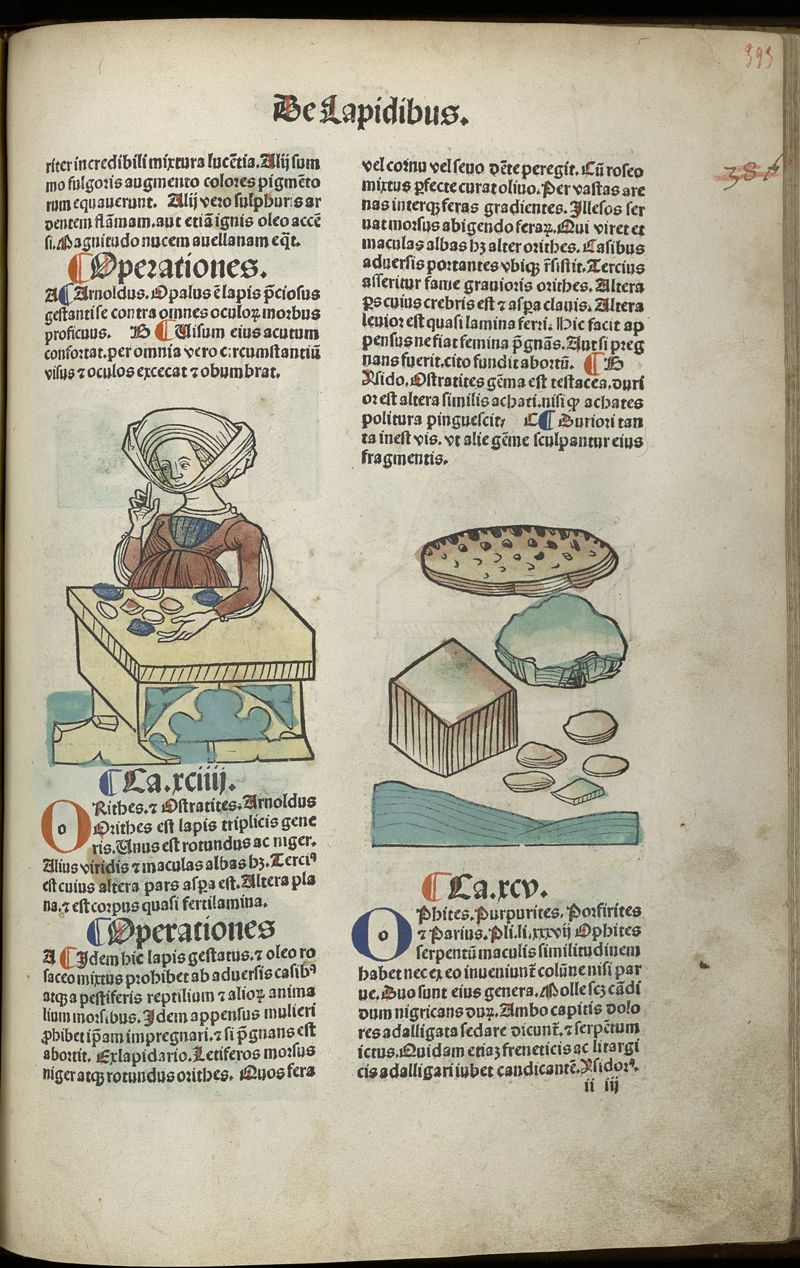 393
De Lapidibus.
riter incredibili mixtura lucētia. Alij sum
mo fulgoris augmento colores pigmēto
rum equauerunt. Alij vero sulphuris ar
dentem flāmam. aut etiā ignis oleo accē
si. Magnitudo nucem auellanam eq̄t.
¶ Operationes.
A ¶ Arnoldus. Opalus ē lapis p̄ciosus
gestanti se contra omnes oculoꝝ morbus
proficuus. B ¶ Uisum eius acutum
confortat. per omnia vero circumstantiū
visus ⁊ oculos excecat ⁊ obumbrat.
¶ Ca. xciiij.
ORithes. ⁊ Ostratites. Arnoldus
Orithes est lapis triplicis gene
ris. Unus est rotundus ac niger.
Alius viridis ⁊ maculas albas hꝫ. Terciꝰ
est cuius altera pars aspa est. Altera pla
na. ⁊ est corpus quasi ferti lamina.
¶ Operationes
A ¶ Idem hic lapis gestatus. ⁊ oleo ro
saceo mixtus prohibet ab aduersis casibꝰ
atqꝫ a pestiferis reptilium ⁊ alioꝝ anima
lium morsibus. Idem appensus mulieri
ꝓhibet ip̄am impregnari. ⁊ si p̄gnans est
abortit. Ex lapidario. Letiferos morsus
niger atqꝫ rotundus orithes. Quos fera
vel cornu vel seuo dēte peregit. Cū roseo
mixtus ꝑfecte curat oliuo. Per vastas are
nas interqꝫ feras gradientes. Illesos ser
uat morsus abigendo feraꝝ. Qui viret et
maculas albas hꝫ alter orithes. Casibus
aduersis portantes vbiqꝫ r̄sistit. Tercius
asseritur fame grauioris orithes. Altera
ps cuius crebris est ⁊ aspa clauis. Altera
leuior est quasi lamina ferri. Hic facit ap
pensus ne fiat femina p̄gnās. Aut si preg
nans fuerit. cito fundit abortū. ¶ B
Ysido. Ostratites gēma est testacea. duri
or est altera similis achati. nisi ꝙ achates
politura pinguescit. C ¶ Duriori tan
ta inest vis. vt alie gēme sculpantur eius
fragmentis.
¶ Ca. xcv.
OPhites. Purpurites. Porfirites
⁊ Parius. Pli. li. xxxvij Ophites
serpentū maculis similitudinem
habet nec ex eo inueniunt̄ colūne nisi par
ue. Duo sunt eius genera. Molle scꝫ cādi
dum nigricans duꝝ. Ambo capitis dolo
res adalligata sedare dicunt̄. ⁊ serpētum
ictus. Quidam etiaꝫ freneticis ac litargi
cis adalligari iubet candicantē. Ysidorꝰ.
ii iij